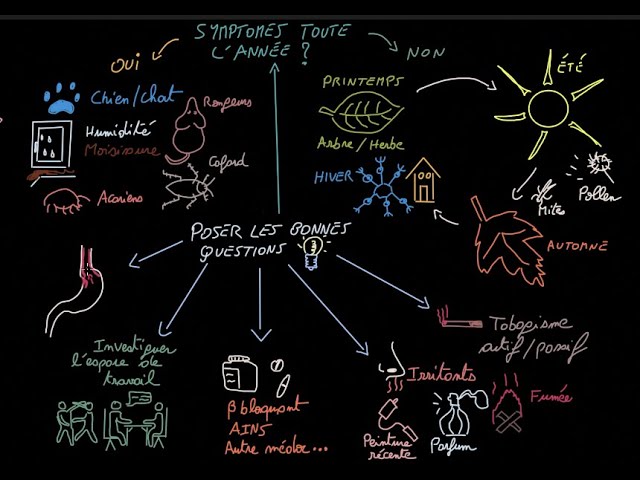 SYMPTOMES TOUTE
L'ANNÉE ?
OUI
NON
Chien/chat
Rongeurs
Humidité
Moisissure
Cafard
Acariens
PRINTEMPS
Arbre/Herbe
ÉTÉ
Pollen
Mites
HIVER
AUTOMNE
POSER LES BONNES
QUESTIONS
Investiguer
l'espace de
travail
β bloquant
AINS
Autre médoc...
Irritants
Peinture
récente
Parfum
Fumée
Tabagisme
actif/passif